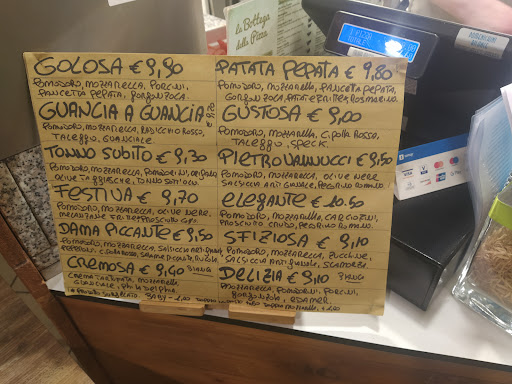 la Bottega
della Pizza
GOLOSA € 9,90
POMODORO, MOZZARELLA, PORCINI,
PANCETTA PEPATA, GORGONZOLA.
GUANCIA A GUANCIA
POMODORO, MOZZARELLA, RADICCHIO ROSSO,
TALEGGIO, GUANCIALE.
TONNO SUBITO € 9,30
POMODORO, MOZZARELLA, POMODORINI, CIPOLLA
OLIVE TAGGIASCHE, TONNO SOTT'OLIO
FESTIVA € 9,70
POMODORO, MOZZARELLA, OLIVE NERE,
MELANZANE, PROSCIUTTO
DAMA PICCANTE € 9,50
POMODORO, MOZZARELLA, SALSICCIA
PEPERONI, CIPOLLA ROSSA, SALAME PICCANTE, RUCOLA
CREMOSA € 9,40 BIANCA
CREMA TARTUFATA, MOZZARELLA,
GUANCIALE, PHILADELPHIA
PATATA PEPATA € 9,80
POMODORO, MOZZARELLA, PANCETTA PEPATA,
GORGONZOLA, PATATE FRITTE, ROSMARINO.
GUSTOSA € 9,00
POMODORO, MOZZARELLA, CIPOLLA ROSSA,
TALEGGIO, SPECK.
PIETRO VANNUCCI € 9,50
POMODORO, MOZZARELLA, OLIVE NERE
SALSICCIA ARTIGIANALE, PECORINO ROMANO.
ELEGANTE € 10.50
POMODORO, MOZZARELLA, CARCIOFINI,
PROSCIUTTO CRUDO, PECORINO ROMANO.
SFIZIOSA € 9,10
POMODORO, MOZZARELLA, ZUCCHINE,
SALSICCIA ARTIGIANALE, SCAMORZA.
DELIZIA € 9,10 BIANCA
MOZZARELLA, POMODORINI, PORCINI,
GORGONZOLA, EDAMER.